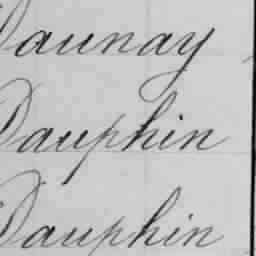 Daunay
Dauphin
Dauphin